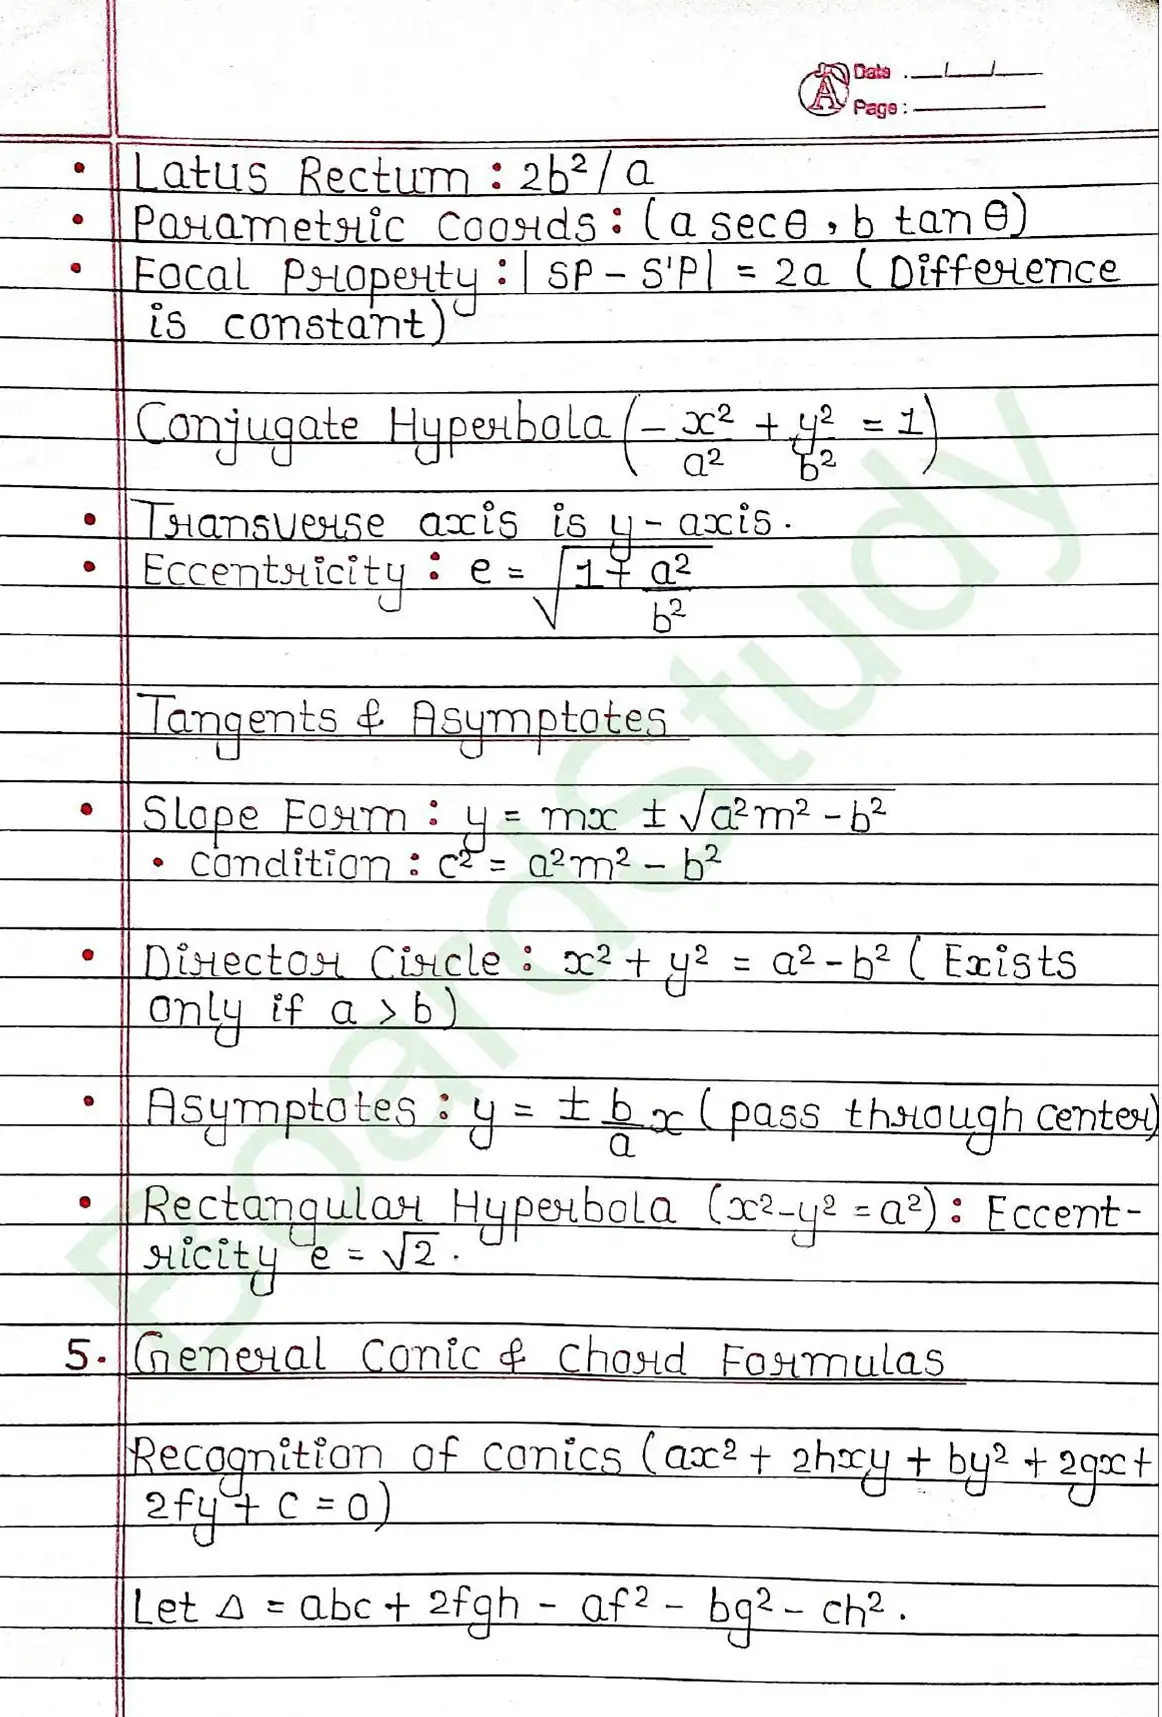 Date : __/__/__
Page :
• Latus Rectum : 2b²/a
• Parametric Coords : (a secθ, b tan θ)
• Focal Property : |SP - S'P| = 2a (Difference
is constant)
Conjugate Hyperbola (-x²/a² + y²/b² = 1)
• Transverse axis is y-axis.
• Eccentricity : e = √(1 + a²/b²)
Tangents & Asymptotes
• Slope Form : y = mx ± √(a²m² - b²)
• condition : c² = a²m² - b²
• Director Circle : x² + y² = a² - b² (Exists
only if a > b)
• Asymptotes : y = ± b/a x (pass through center)
• Rectangular Hyperbola (x² - y² = a²) : Eccent-
ricity e = √2.
5. General Conic & Chord Formulas
Recognition of conics (ax² + 2hxy + by² + 2gx +
2fy + c = 0)
Let Δ = abc + 2fgh - af² - bg² - ch².
BoardStudy